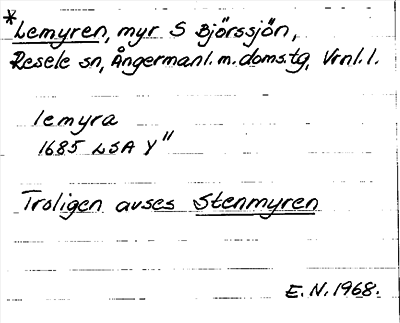 *Lemyren, myr S Björssjön,
Resele sn, Ångermanl. m. doms.tg, Vrnl. l.
lemyra
1685 LSA Y"
Troligen avses Stenmyren
E. N. 1968.